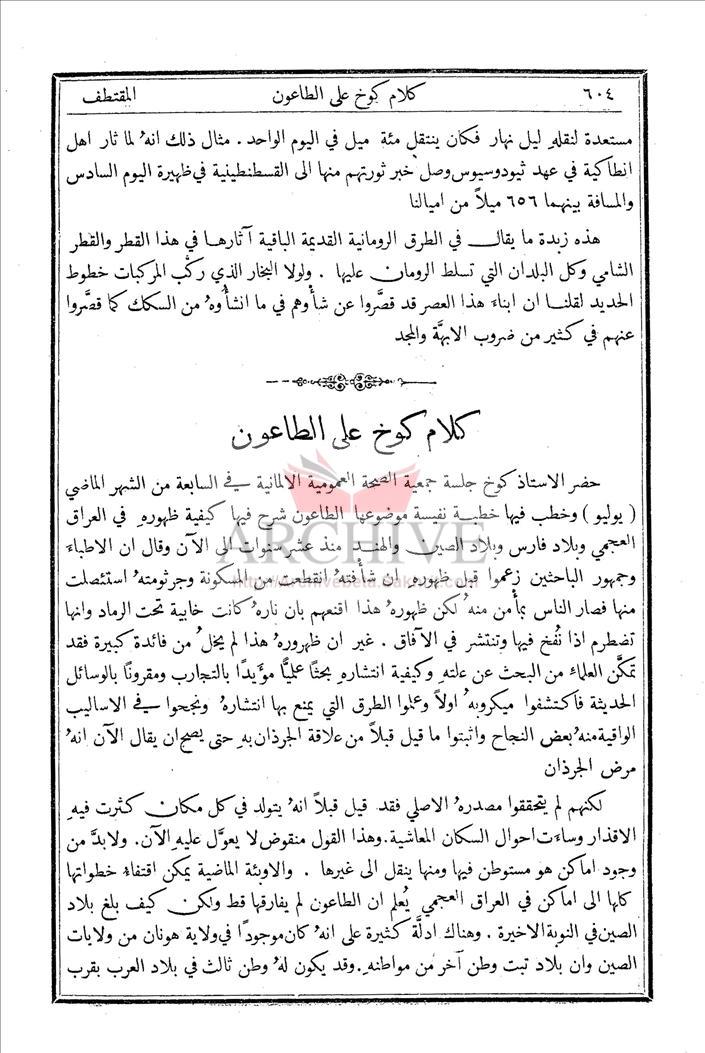 ٦٠٤ كلام كوخ على الطاعون المقتطف
مستعدة لنقلهِ ليل نهار فكان ينتقل مئة ميل في اليوم الواحد . مثال ذلك انهُ لما ثار اهل
انطاكية في عهد ثيودوسيوس وصل خبر ثورتهم منها الى القسطنطينية في ظهيرة اليوم السادس
والمسافة بينهما ٦٥٦ ميلاً من اميالنا
هذه زبدة ما يقال في الطرق الرومانية القديمة الباقية آثارها في هذا القطر والقطر
الشامي وكل البلدان التي تسلط الرومان عليها . ولولا البخار الذي ركّب المركبات خطوط
الحديد لقلنا ان ابناء هذا العصر قد قصَّروا عن شأوهم في ما انشأُوهُ من السكك كما قصَّروا
عنهم في كثير من ضروب الابهَّة والمجد
كلام كوخ على الطاعون
حضر الاستاذ كوخ جلسة جمعية الصحة العمومية الالمانية في السابعة من الشهر الماضي
( يوليو ) وخطب فيها خطبة نفيسة موضوعها الطاعون شرح فيها كيفية ظهورهِ في العراق
العجمي وبلاد فارس وبلاد الصين والهند منذ عشر سنوات الى الآن وقال ان الاطباء
وجمهور الباحثين زعموا قبل ظهورهِ ان شأفتهُ انقطعت من المسكونة وجرثومتهُ استئصلت
منها فصار الناس بمأمن منهُ لكن ظهورهُ هذا اقنعهم بان نارهُ كانت خابية تحت الرماد وانها
تضطرم اذا نُفخ فيها وتنتشر في الآفاق . غير ان ظهورهُ هذا لم يخلُ من فائدة كبيرة فقد
تمكَّن العلماء من البحث عن علتهِ وكيفية انتشارهِ بحثاً عمليًّا مؤيدًا بالتجارب ومقرونًا بالوسائل
الحديثة فاكتشفوا ميكروبهُ اولاً وعلموا الطرق التي يمنع بها انتشارهُ ونجحوا في الاساليب
الواقية منهُ بعض النجاح واثبتوا ما قيل قبلاً من علاقة الجرذان بهِ حتى يصح ان يقال الآن انهُ
مرض الجرذان
لكنهم لم يتحققوا مصدرهُ الاصلي فقد قيل قبلاً انهُ يتولد في كل مكان كثرت فيهِ
الاقذار وساءت احوال السكان المعاشية. وهذا القول منقوض لا يعوَّل عليهِ الآن. ولابدَّ من
وجود اماكن هو مستوطن فيها ومنها ينقل الى غيرها . والاوبئة الماضية يمكن اقتفاء خطواتها
كلها الى اماكن في العراق العجمي يُعلم ان الطاعون لم يفارقها قط ولكن كيف بلغ بلاد
الصين في النوبة الاخيرة . وهناك ادلَّة كثيرة على انهُ كان موجودًا في ولاية هونان من ولايات
الصين وان بلاد تبت وطن آخر من مواطنهِ. وقد يكون لهُ وطن ثالث في بلاد العرب بقرب
ARCHIVE